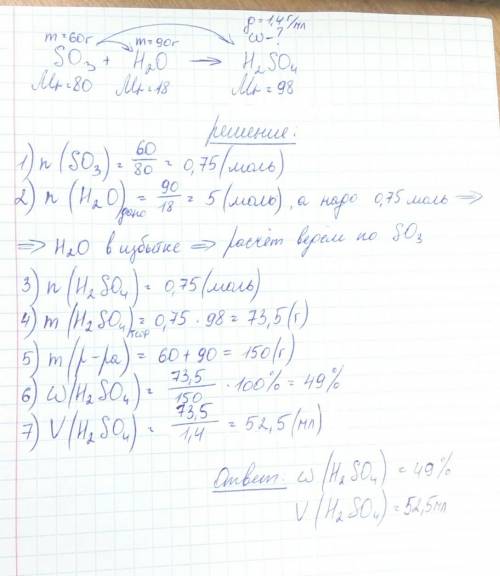 ρ=1,4г/мл
m=60г m=90г ω-?
SO₃ + H₂O → H₂SO₄
Mr=80 Mr=18 Mr=98
решение:
1) n(SO₃) = 60/80 = 0,75 (моль)
2) n(H₂O)дано = 90/18 = 5 (моль), а надо 0,75 моль ⇒
⇒ H₂O в избытке ⇒ расчёт ведём по SO₃
3) n(H₂SO₄) = 0,75 (моль)
4) m(H₂SO₄) = 0,75 · 98 = 73,5 (г)
5) m(р-ра) = 60 + 90 = 150 (г)
6) ω(H₂SO₄) = 73,5/150 · 100% = 49%
7) V(H₂SO₄) = 73,5/1,4 = 52,5 (мл)
Ответ: ω(H₂SO₄) = 49%
V(H₂SO₄) = 52,5мл